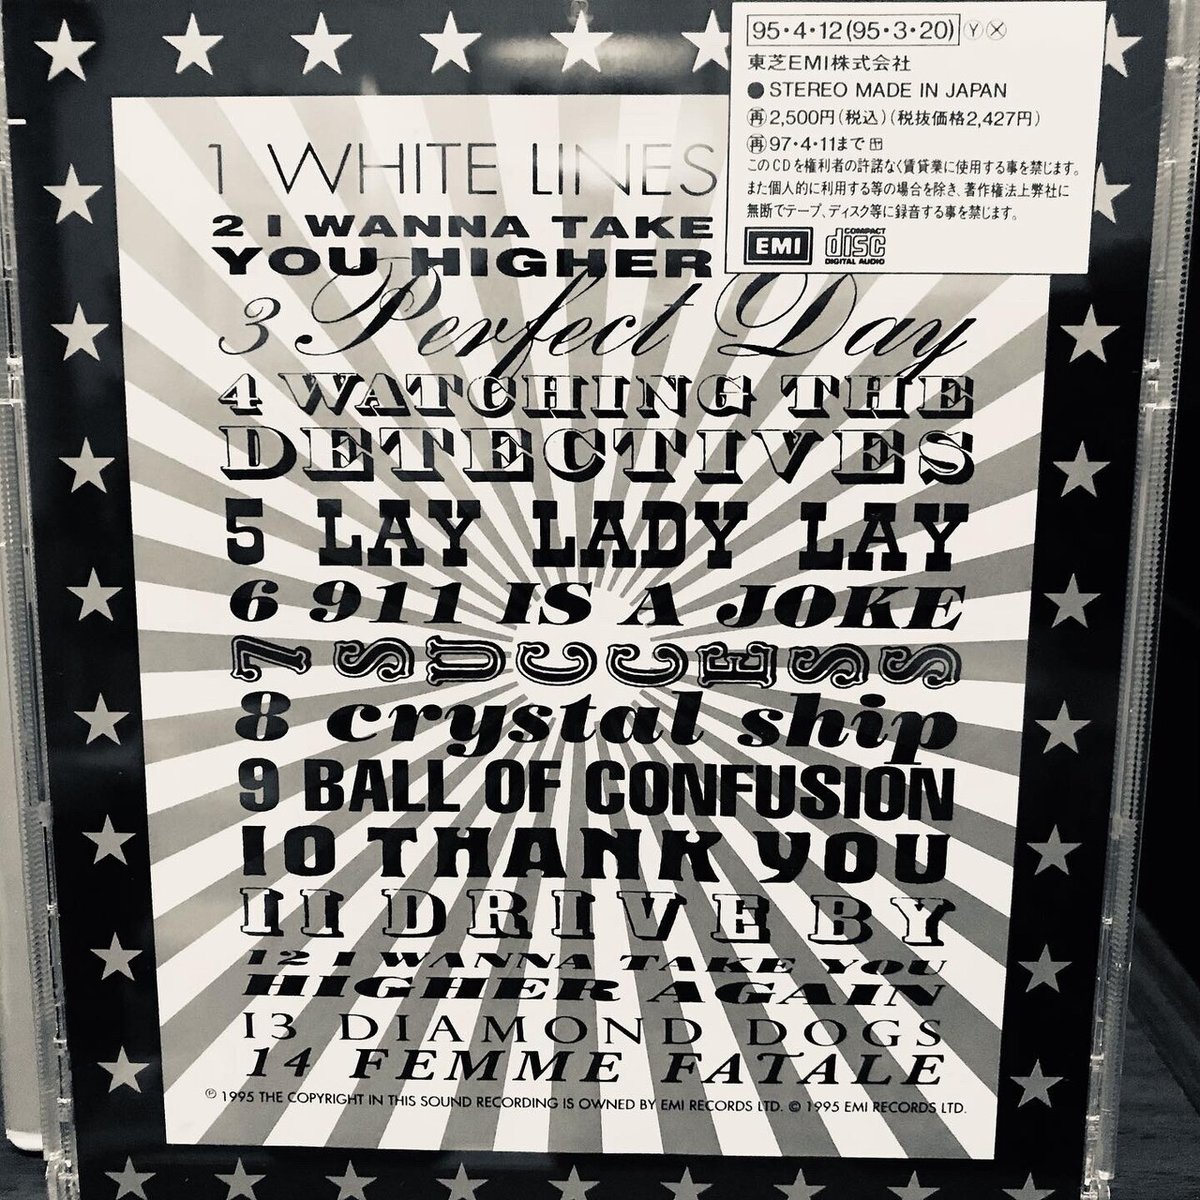 95・4・12(95・3・20)ⓎⓍ
東芝EMI株式会社
●STEREO MADE IN JAPAN
再2,500円(税込)(税抜価格2,427円)
再97・4・11まで
このCDを権利者の許諾なく賃貸業に使用する事を禁じます。
また個人的に利用する等の場合を除き、著作権法上弊社に
無断でテープ、ディスク等に録音する事を禁じます。
EMI
COMPACT
disc
DIGITAL AUDIO
1 WHITE LINES
2 I WANNA TAKE
YOU HIGHER
3 Perfect Day
4 WATCHING THE
DETECTIVES
5 LAY LADY LAY
6 911 IS A JOKE
7 SUCCESS
8 crystal ship
9 BALL OF CONFUSION
10 THANK YOU
11 DRIVE BY
12 I WANNA TAKE YOU
HIGHER AGAIN
13 DIAMOND DOGS
14 FEMME FATALE
℗ 1995 THE COPYRIGHT IN THIS SOUND RECORDING IS OWNED BY EMI RECORDS LTD. © 1995 EMI RECORDS LTD.